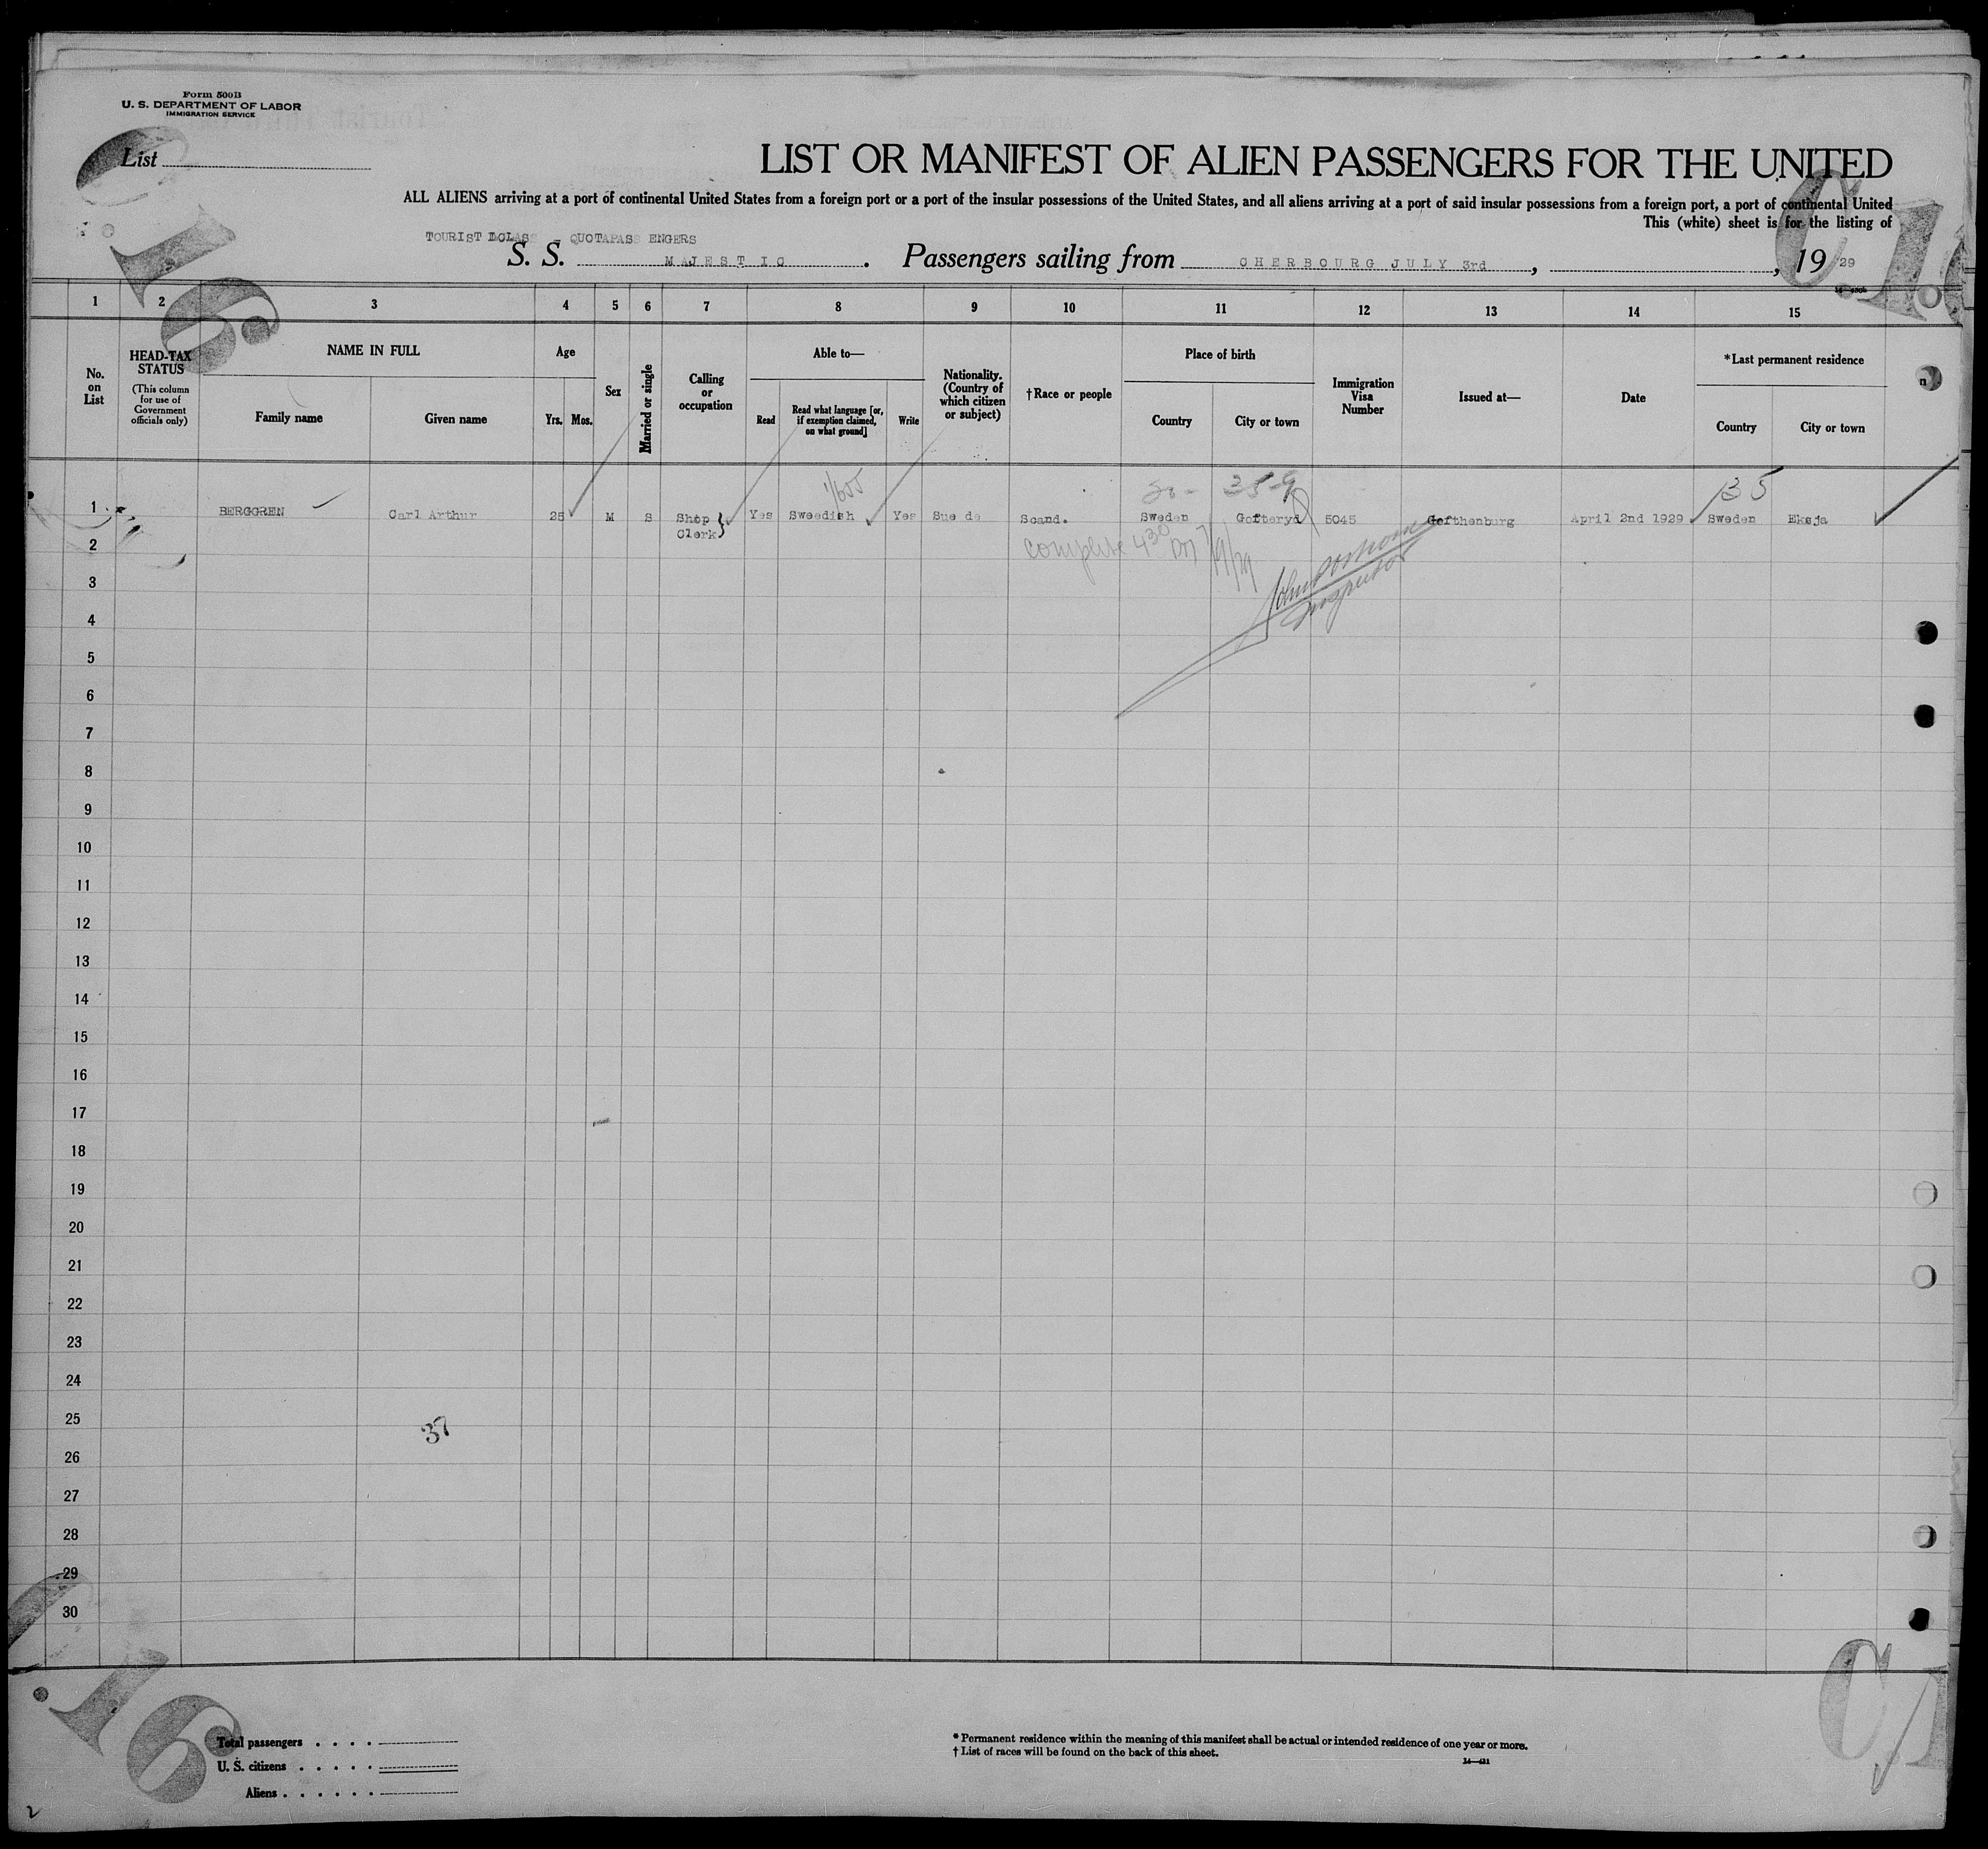 Form 500B
U. S. DEPARTMENT OF LABOR
IMMIGRATION SERVICE
List
LIST OR MANIFEST OF ALIEN PASSENGERS FOR THE UNITED
ALL ALIENS arriving at a port of continental United States from a foreign port or a port of the insular possessions of the United States, and all aliens arriving at a port of said insular possessions from a foreign port, a port of continental United
This (white) sheet is for the listing of
TOURIST CLASS - QUOTAPASS ENGERS
S. S. MAJESTIC. Passengers sailing from CHERBOURG JULY 3rd, , 19 29
1 2 3 4 5 6 7 8 9 10 11 12 13 14 15
No. on List
HEAD-TAX STATUS
(This column for use of Government officials only)
NAME IN FULL
Family name
Given name
Age
Yrs. Mos.
Sex
Married or single
Calling or occupation
Able to—
Read
Read what language [or, if exemption claimed, on what ground]
Write
Nationality. (Country of which citizen or subject)
†Race or people
Place of birth
Country
City or town
Immigration Visa Number
Issued at—
Date
*Last permanent residence
Country
City or town
35
1 BERGGREN Carl Arthur 25 M S Shop Yes Swedish Yes Sue de Scand. Sweden Gofteryd 5045 Gofthenburg April 2nd 1929 Sweden Eksja
Clerk
complete 430 pm 7/9/29
Inspector
2
3
4
5
6
7
8
9
10
11
12
13
14
15
16
17
18
19
20
21
22
23
24
25
37
26
27
28
29
30
16
Total passengers . . . .
U. S. citizens . . . . .
Aliens . . . . . .
* Permanent residence within the meaning of this manifest shall be actual or intended residence of one year or more.
† List of races will be found on the back of this sheet.